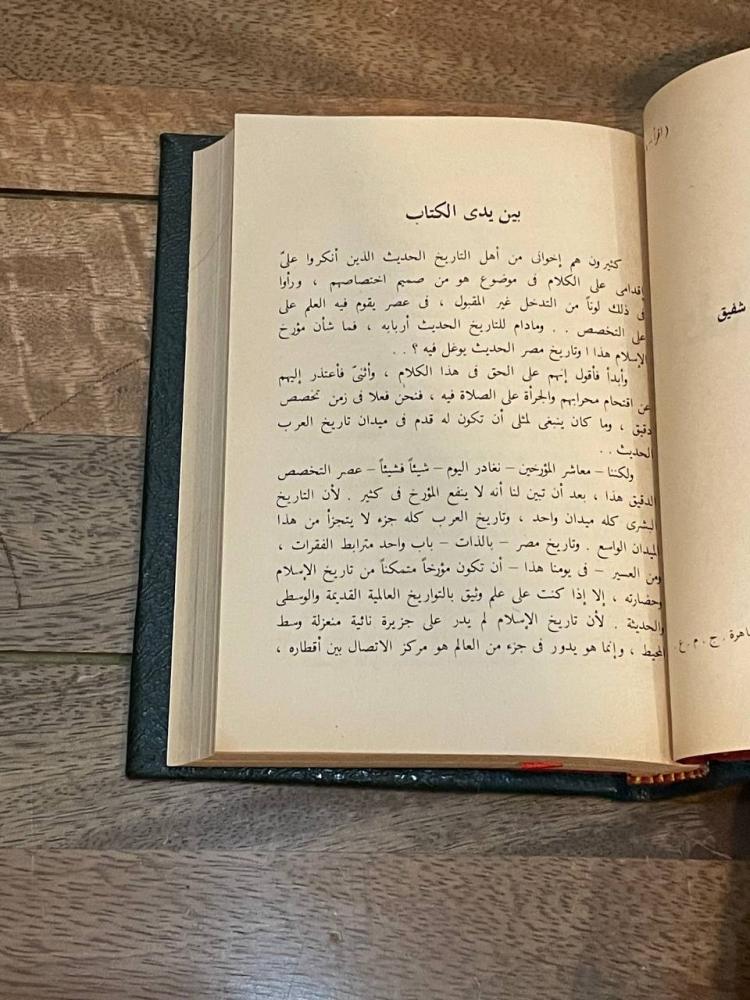 (اقرأ
شفيق
ج . م . ع .
بين يدى الكتاب
كثيرون هم إخوانى من أهل التاريخ الحديث الذين أنكروا علىّ
إقدامى على الكلام فى موضوع هو من صميم اختصاصهم ، ورأوا
فى ذلك لوناً من التدخل غير المقبول ، فى عصر يقوم فيه العلم على
على التخصص . . ومادام للتاريخ الحديث أربابه ، فما شأن مؤرخ
الإسلام هذا وتاريخ مصر الحديث يوغل فيه ؟ . .
وأبدأ فأقول إنهم على الحق فى هذا الكلام ، وأثنىّ فأعتذر إليهم
عن اقتحام محرابهم والجرأة على الصلاة فيه ، فنحن فعلا فى زمن تخصص
دقيق ، وما كان ينبغى لمثلى أن تكون له قدم فى ميدان تاريخ العرب
الحديث . .
ولكننا – معاشر المؤرخين – نغادر اليوم – شيئاً فشيئاً – عصر التخصص
الدقيق هذا ، بعد أن تبين لنا أنه لا ينفع المؤرخ فى كثير . لأن التاريخ
البشرى كله ميدان واحد ، وتاريخ العرب كله جزء لا يتجزأ من هذا
الميدان الواسع . وتاريخ مصر – بالذات – باب واحد مترابط الفقرات ،
ومن العسير – فى يومنا هذا – أن تكون مؤرخاً متمكناً من تاريخ الإسلام
وحضارته ، إلا إذا كنت على علم وثيق بالتواريخ العالمية القديمة والوسطى
والحديثة . لأن تاريخ الإسلام لم يدر على جزيرة نائية منعزلة وسط
المحيط ، وإنما هو يدور فى جزء من العالم هو مركز الاتصال بين أقطاره ،